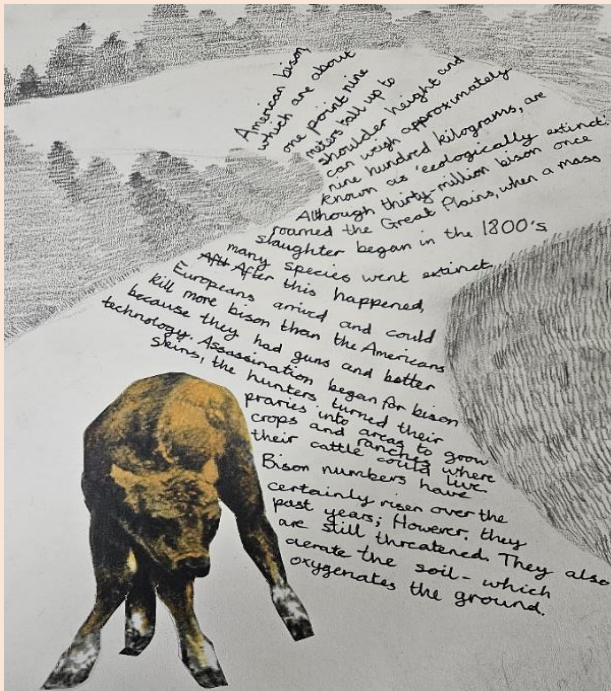 American bison,
which are about
one point nine
meters tall up to
shoulder height and
can weigh approximately
nine hundred kilograms, are
known as 'ecologically extinct.'
Although thirty-million bison once
roamed the Great Plains, when a mass
slaughter began in the 1800's
many species went extinct.
Aft After this happened,
Europeans arrived and could
kill more bison than the Americans
because they had guns and better
technology. Assassination began for bison
skins, the hunters turned their
praries into areas to grow
crops and ranches where
their cattle could live.
Bison numbers have
certainly risen over the
past years; However, they
are still threatened. They also
aerate the soil - which
oxygenates the ground.